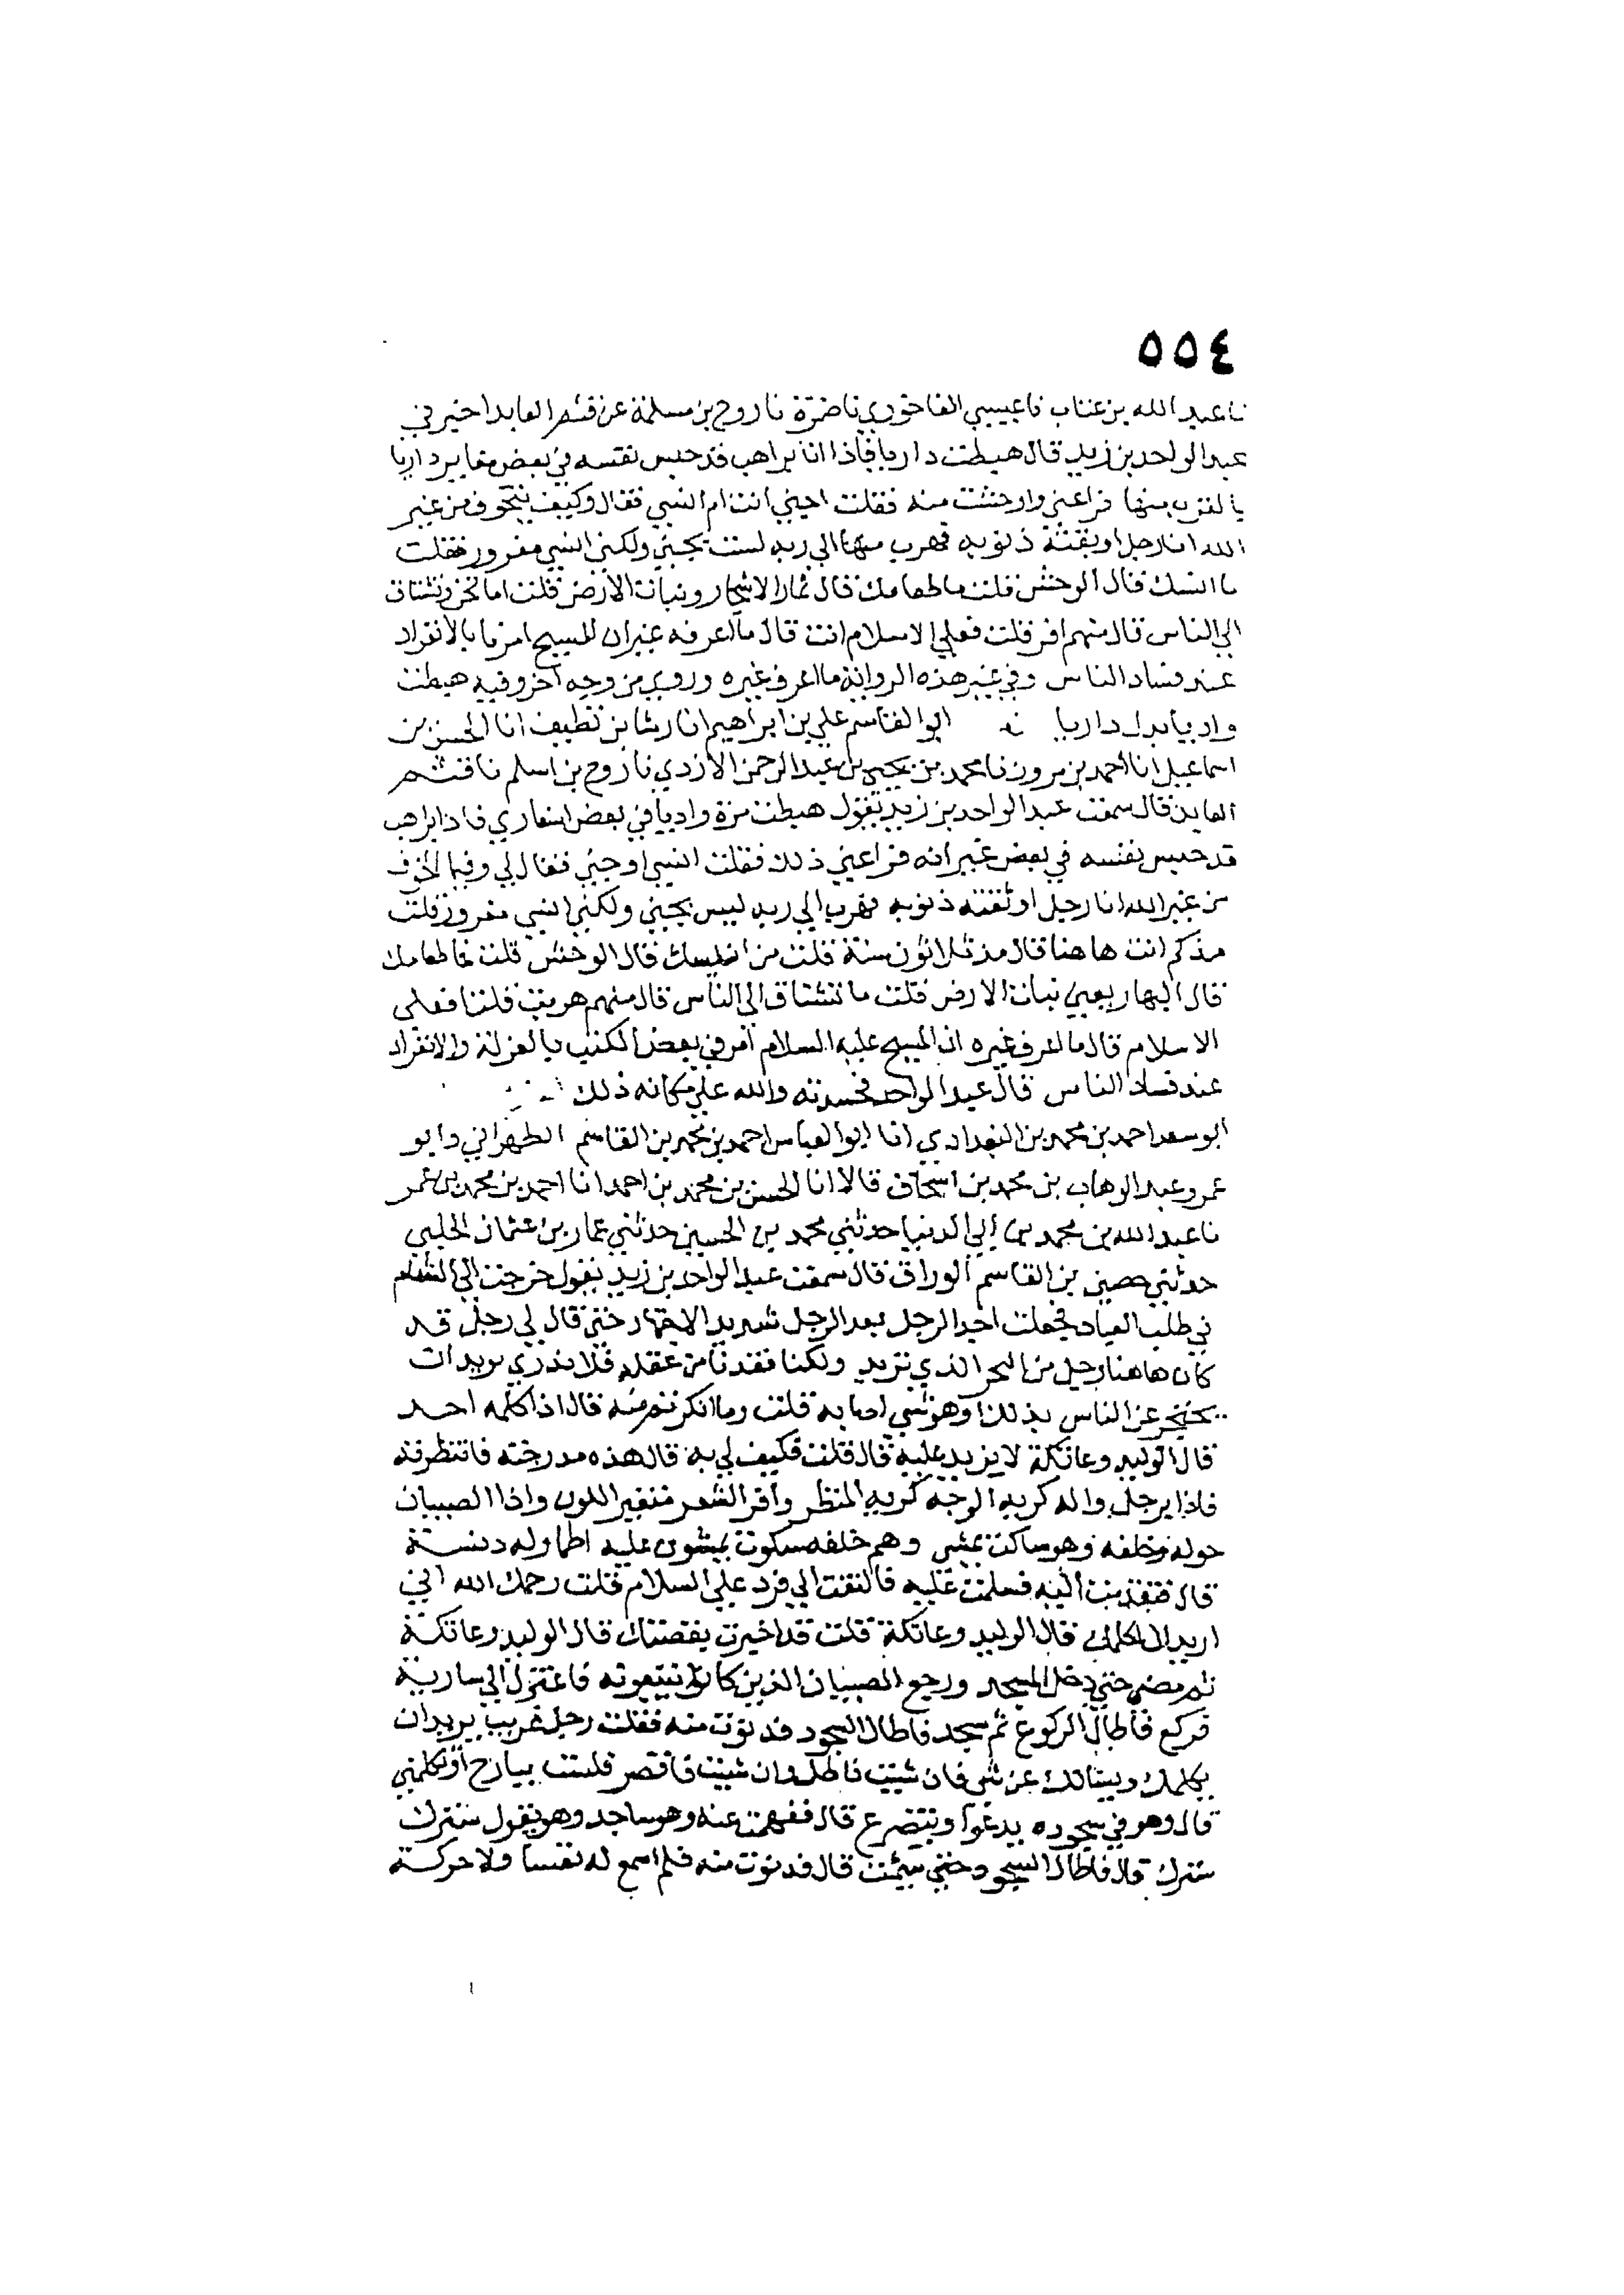 ٥٥٤
نا عبد الله بن عتاب نا عيسى الفاخوري نا ضمرة نا روح بن مسلمة عن قثم العابد اخبرني
عبد الواحد بن زيد قال هبطت داريا فاذا انا براهب قد حبس نفسه في بعض مغاير داريا
بالقرب منها فراعني واوحشت منه فقلت اجني انت ام انسي فقال وكيف يتخوف من غير
الله انا رجل اوبقته ذنوبه فهرب منها الى ربه لست بجني ولكني انسي مغرور فقلت
ما انسك قال الوحش قلت ما طعامك قال ثمار الاشجار ونبات الارض قلت اما تحن وتشتاق
الى الناس قال منهم افر قلت فعلى الاسلام انت قال ما اعرفه غير ان المسيح امرنا بالانفراد
عند فساد الناس وفي غير هذه الرواية ما اعرف غيره وروي من وجه آخر وفيه هبطت
واديا بدل داريا ابو القاسم علي بن ابراهيم انا رشا بن نظيف انا الحسن بن
اسماعيل انا احمد بن مرون نا محمد بن يحيى بن عبد الرحمن الازدي نا روح بن اسلم نا قثم
العابد قال سمعت عبد الواحد بن زيد يقول هبطت مرة واديا في بعض اسفاري فاذا براهب
قد حبس نفسه في بعض غيرانه فراعني ذلك فقلت انسي او جني فقال لي وفيما الخوف
من غير الله انا رجل اوثقته ذنوبه فهرب الى ربه ليس بجني ولكني انسي مغرور قلت
مذ كم انت هاهنا قال مذ ثلاثون سنة قلت من انيسك قال الوحش قلت فما طعامك
قال البهار يعني نبات الارض قلت ما تشتاق الى الناس قال منهم هربت قلت افعلى
الاسلام قال ما اعرف غيره ان المسيح عليه السلام امر في بعض الكتب بالعزلة والانفراد
عند فساد الناس قال عبد الواحد فحسدته والله على مكانه ذلك
ابو سعد احمد بن محمد بن البغدادي انا ابو العباس احمد بن محمد بن القاسم الطهراني وابو
عمرو عبد الوهاب بن محمد بن اسحاق قالا انا الحسن بن محمد بن احمد انا احمد بن محمد بن عمر
نا عبد الله بن محمد بن ابي الدنيا حدثني محمد بن الحسين حدثني عمار بن عثمان الحلبي
حدثني حصين بن القاسم الوراق قال سمعت عبد الواحد بن زيد يقول خرجت الى الشام
في طلب العباد فجعلت اجد الرجل بعد الرجل شديد الاجتهاد حتى قال لي رجل قد
كان هاهنا رجل من النحو الذي تريد ولكنا فقدنا من عقله فلا ندري يريد ان
يحتجر عن الناس بذلك او هو شي اصابه قلت وما انكرتم منه قال اذا كلمه احد
قال الوليد وعاتكة لا يزيد عليه قال قلت فكيف لي به قال هذه مدرجته فانتظرته
فاذا برجل واله كريه الوجه كريه المنظر وافر الشعر متغير اللون واذا الصبيان
حوله وخلفه وهو ساكت يمشي وهم خلفه سكوت يمشون عليه اطمار له دنسة
قال فتقدمت اليه فسلمت عليه فالتفت الي فرد علي السلام فقلت رحمك الله اني
اريد ان اكلمك فقال الوليد وعاتكة قلت قد اخبرت بقصتك قال الوليد وعاتكة
ثم مضى حتى دخل المسجد ورجع الصبيان الذين كانوا يتبعونه فاعتزل الى سارية
فركع فاطال الركوع ثم سجد فاطال السجود فدنوت منه فقلت رجل غريب يريد ان
يكلمك ويسالك عن شي فان شيت فاطل وان شيت فاقصر فلست ببارح او تكلمني
قال وهو في سجوده يدعوا ويتضرع قال ففهمت عنه وهو ساجد وهو يقول سترك
سترك قال فاطال السجود حتى سيمت قال فدنوت منه فلم اسمع له نفسا ولا حركة